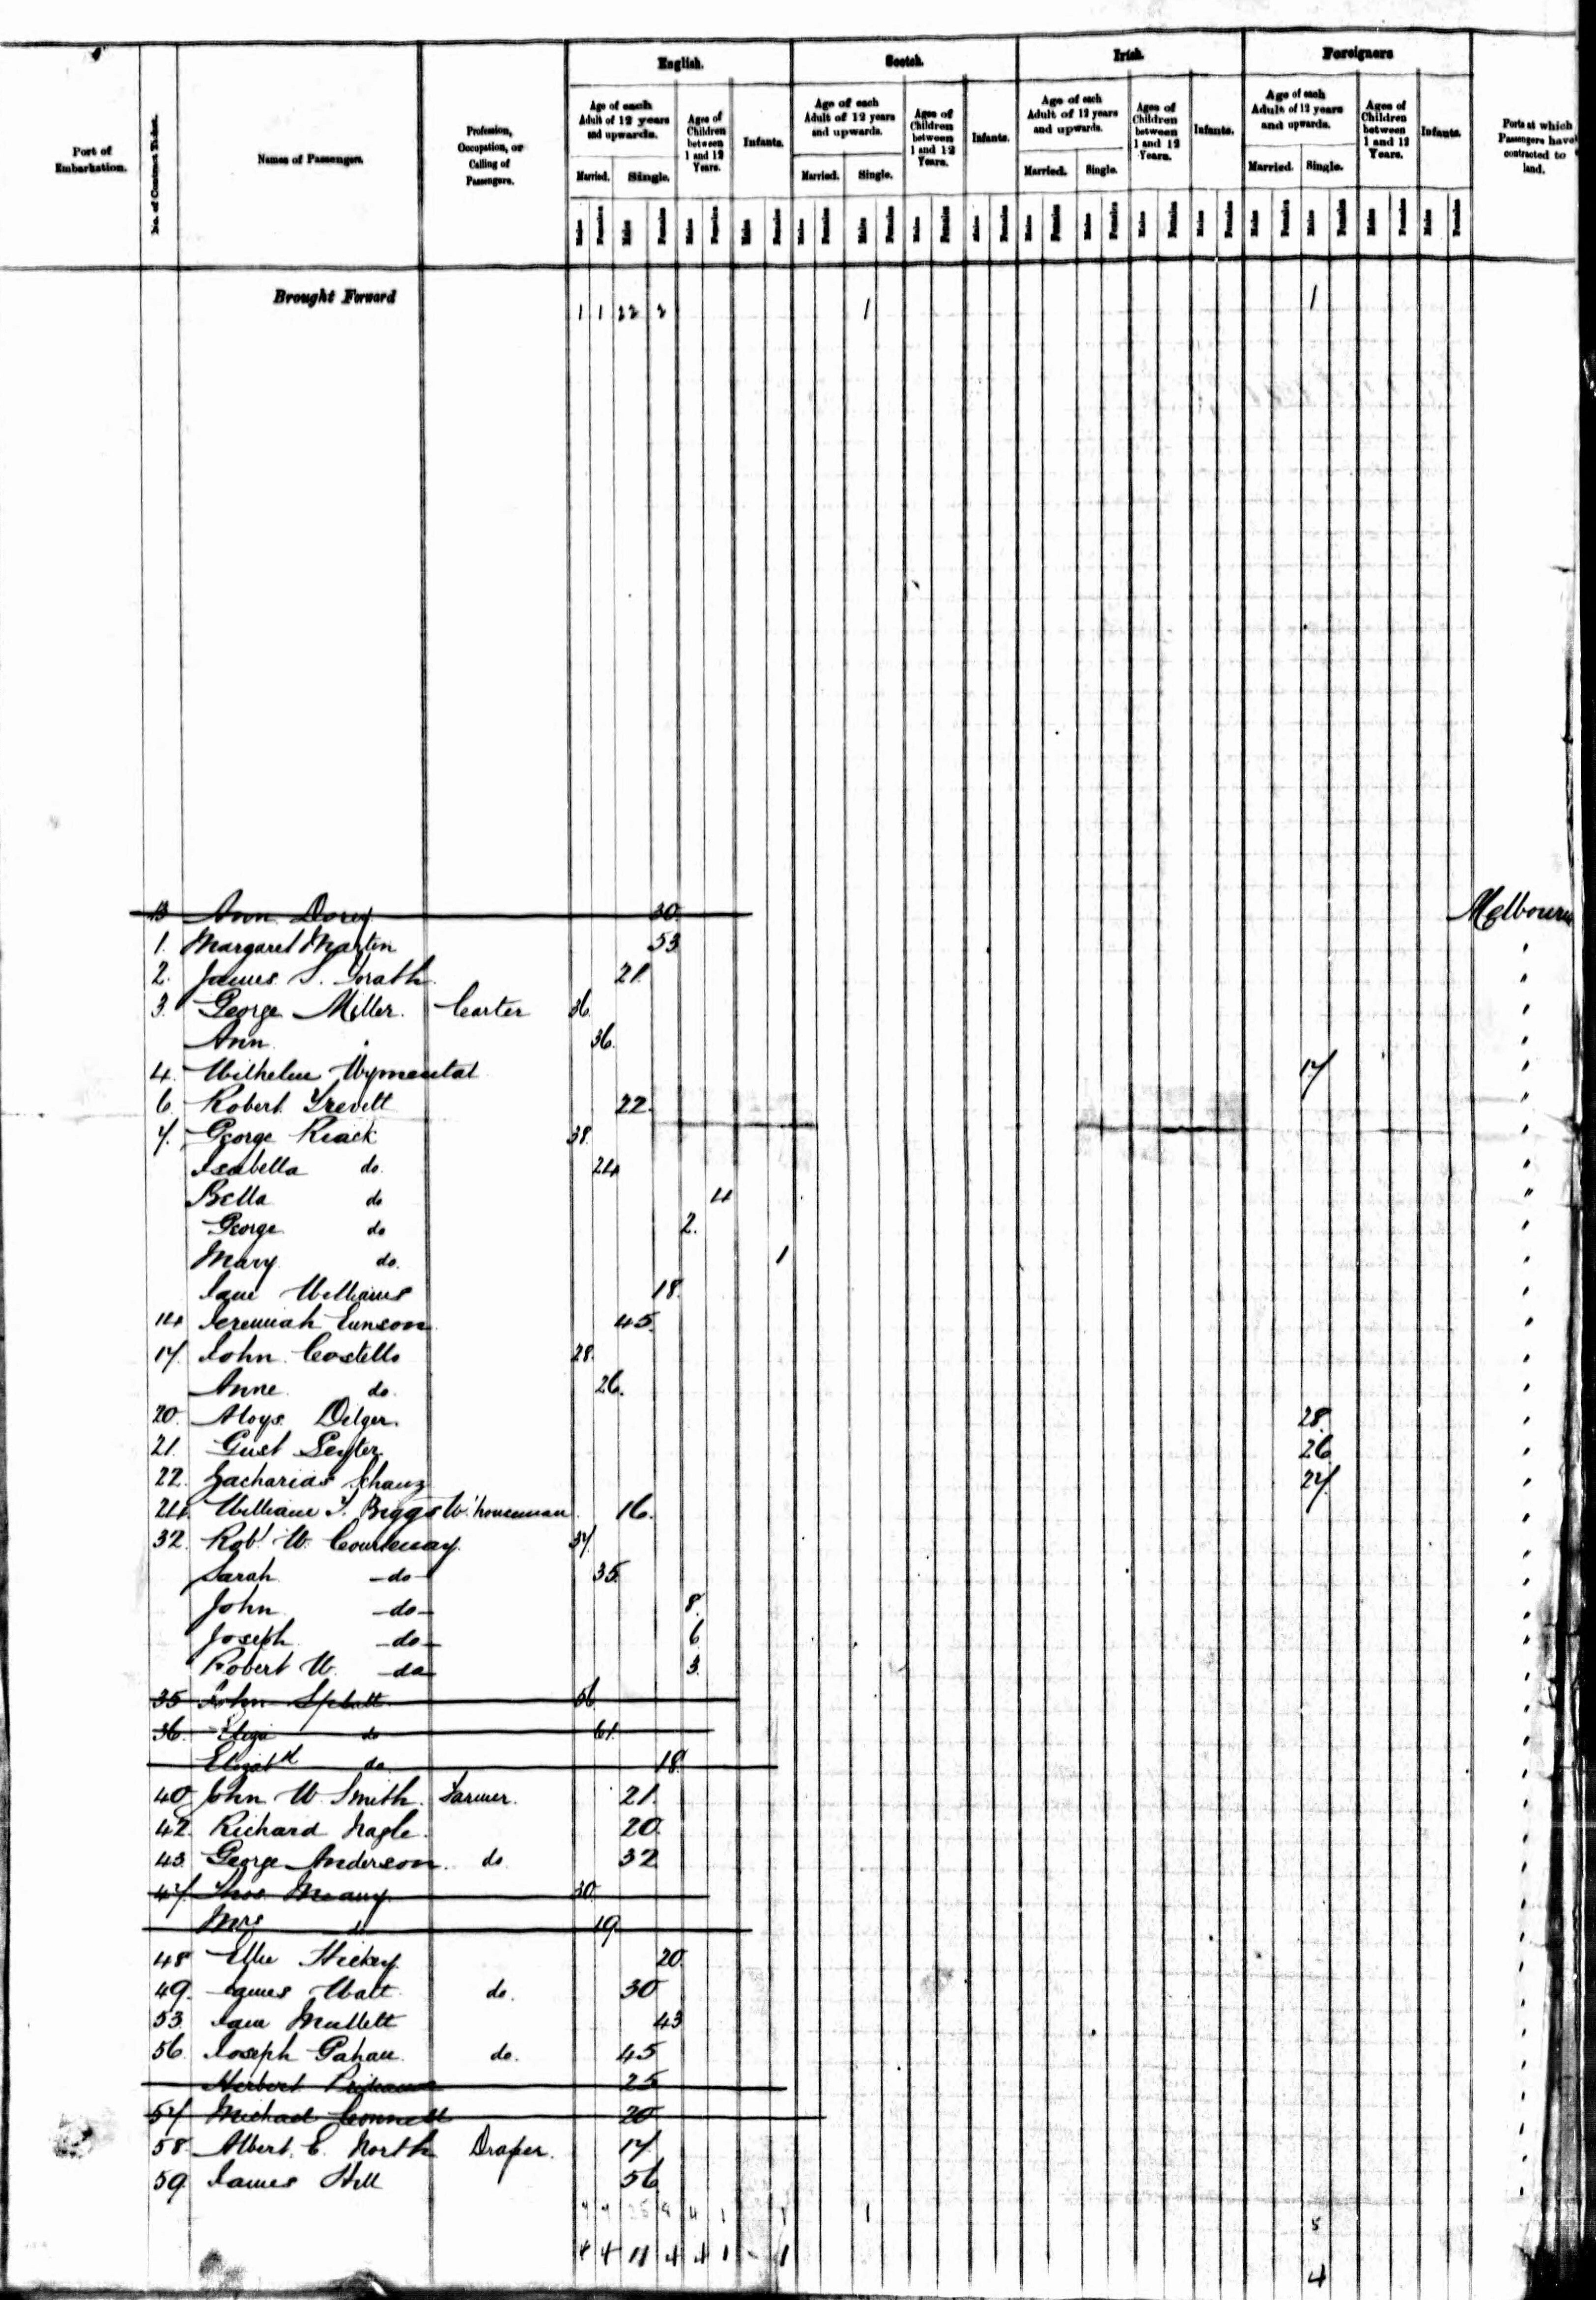 English. Scotch. Irish. Foreigners
Port of Embarkation. No. of Contract Ticket. Names of Passengers. Profession, Occupation, or Calling of Passengers. Age of each Adult of 12 years and upwards. Ages of Children between 1 and 12 Years. Infants. Age of each Adult of 12 years and upwards. Ages of Children between 1 and 12 Years. Infants. Age of each Adult of 12 years and upwards. Ages of Children between 1 and 12 Years. Infants. Age of each Adult of 12 years and upwards. Ages of Children between 1 and 12 Years. Infants. Ports at which Passengers have contracted to land.
Married. Single. Married. Single. Married. Single. Married. Single.
Males Females Males Females Males Females Males Females Males Females Males Females Males Females Males Females Males Females Males Females Males Females Males Females Males Females Males Females Males Females Males Females
Brought Forward 1 1 22 2 1 1
13 Ann Dorey 30 Melbourne
1. Margaret Martin 53 "
2. James S. 21 "
3. George Miller. Carter 36 "
Ann " 36. "
4. Wilhelm 17 "
6 Robert Trevett 22. "
7. George Reack 38 "
Isabella do. 24 "
Bella do 4 "
George do 2. "
Mary do. 1 "
Jane Williams 18. "
14 Jeremiah Eunson 45. "
17. John Costello 28. "
Anne do. 26. "
20. Aloys Dilger. 28. "
21. Gust 26 "
22. Zacharias Schanz 27. "
24. William T. Biggs W'houseman 16. "
32. Robt W. Courtenay. 37. "
Sarah -do- 35. "
John -do- 8. "
Joseph -do- 6 "
Robert W. -do 3. "
35 John 56 "
36. Eliza do 61. "
Elizath do 18. "
40 John W. Smith. Farmer. 21. "
42. Richard Nagle. 20. "
43. George Anderson. do 32 "
47. Thos Meany. 30. "
Mrs do 19. "
48 Ellie Hickey. 20 "
49. James Watt do. 30 "
53 Jane Mullett 43 "
56. Joseph Gahan. do. 45 "
Herbert 25 "
57 Michael Connell 20 "
58. Albert. E. North Draper. 17. "
59. James Hill 56 "
1 5
4 4 11 4 4 1 - 1 4